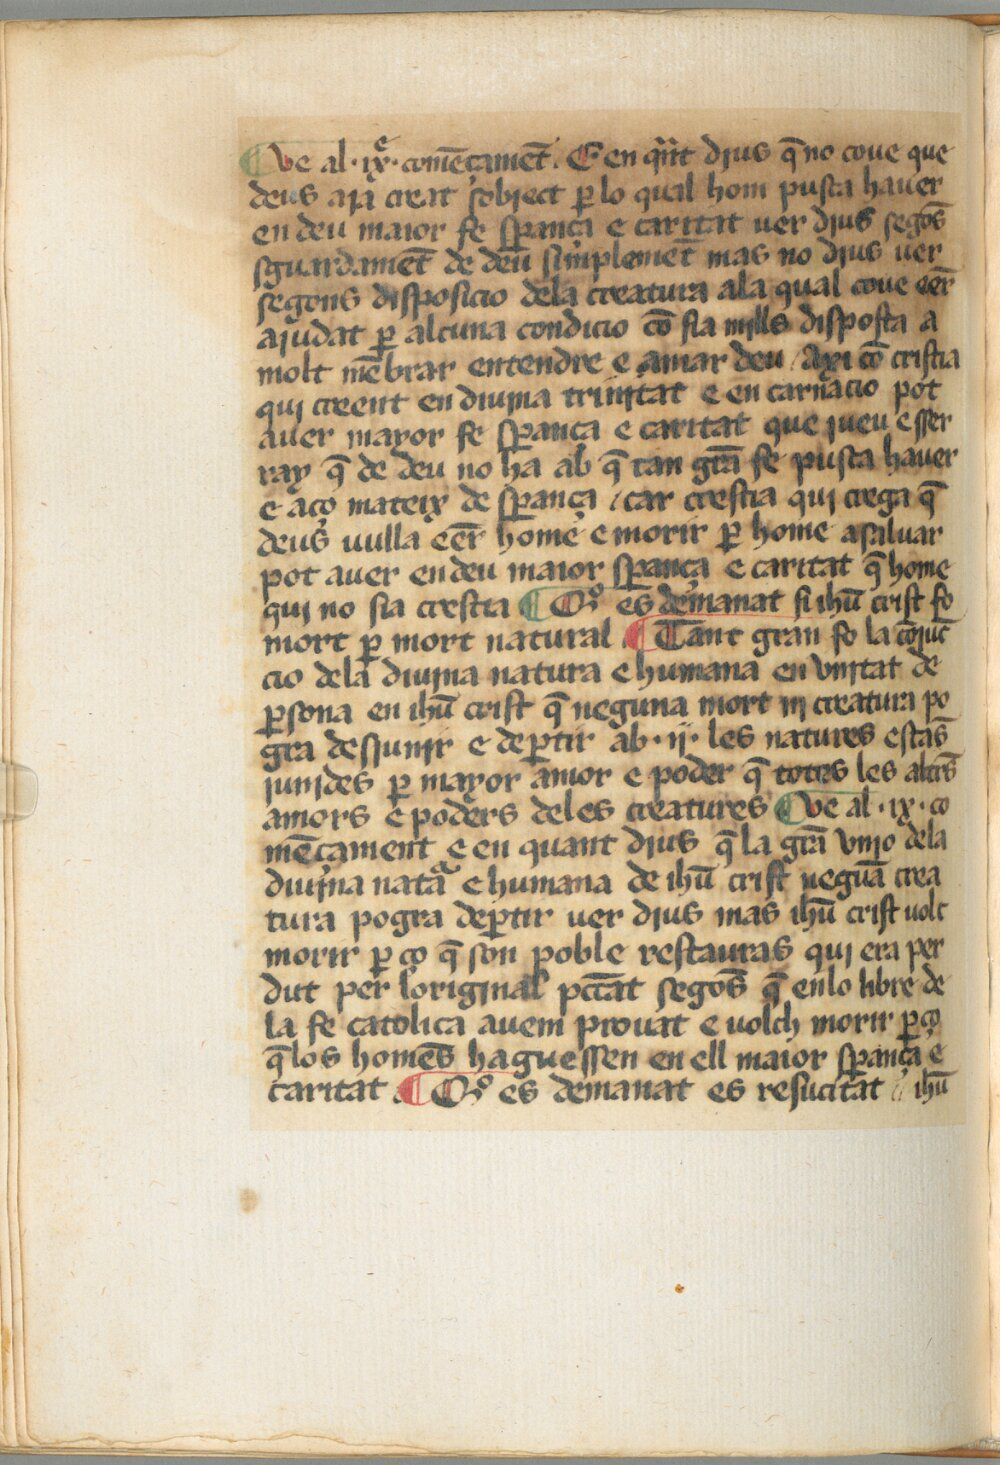 ¶ Ve al ·ixͤ· comēçamēt . E en qⁱnt dius q̄ no coue que
deus aia creat sobiect ꝑ lo qual hom pusca hauer
en deu maior fe sꝑança e caritat uer dius segōs
sguardamēt de deu simplemēt mas no dius uer
segons disposicio dela creatura ala qual coue eēr
aiudat ꝑ alcuna condicio cō sia mills disposta a
molt mēbrar entendre e amar deu / Axi cō cristia
qui creent en diuina trinitat e en carnacio pot
auer mayor fe sꝑança e caritat que jueu e sser
ray q̄ de deu no ha ab q̄ tan grā fe pusca hauer
e aço mateix de sꝑança / car crestia qui crega q̄
deus uulla eēr home e morir ꝑ home a saluar
pot auer en deu maior sꝑança e caritat q̄ home
qui no sia crestia ¶ Qº es demanat si ihū crist fo
mort ꝑ mort natural . ¶ Tant gran fo la cōiuc
cio dela diuina natura e humana en vnitat de
ꝑsona en ihū crist q̄ neguna mort ni creatura po
gra desiunir e deꝑtir ab ·ij· les natures estās
iunides ꝑ mayor amor e poder q̄ totes les altrēs
amors e poders deles creatures ¶ Ve al ·ix· co
mēçament e en quant dius q̄ la grā vnio dela
diuina natᵃ e humana de ihū crist neguā crea
tura pogra deꝑtir uer dius mas ihū crist uolc
morir ꝑ ço q̄ son poble restauras qui era per
dut per loriginal pccāt segōs q̄ en lo libre de
la fe catolica auem prouat e uolch morir ꝑ ço
q̄ los homēs haguessen en ell maior sꝑança e
caritat . ¶ Qº es demanat es resucitat / ihū